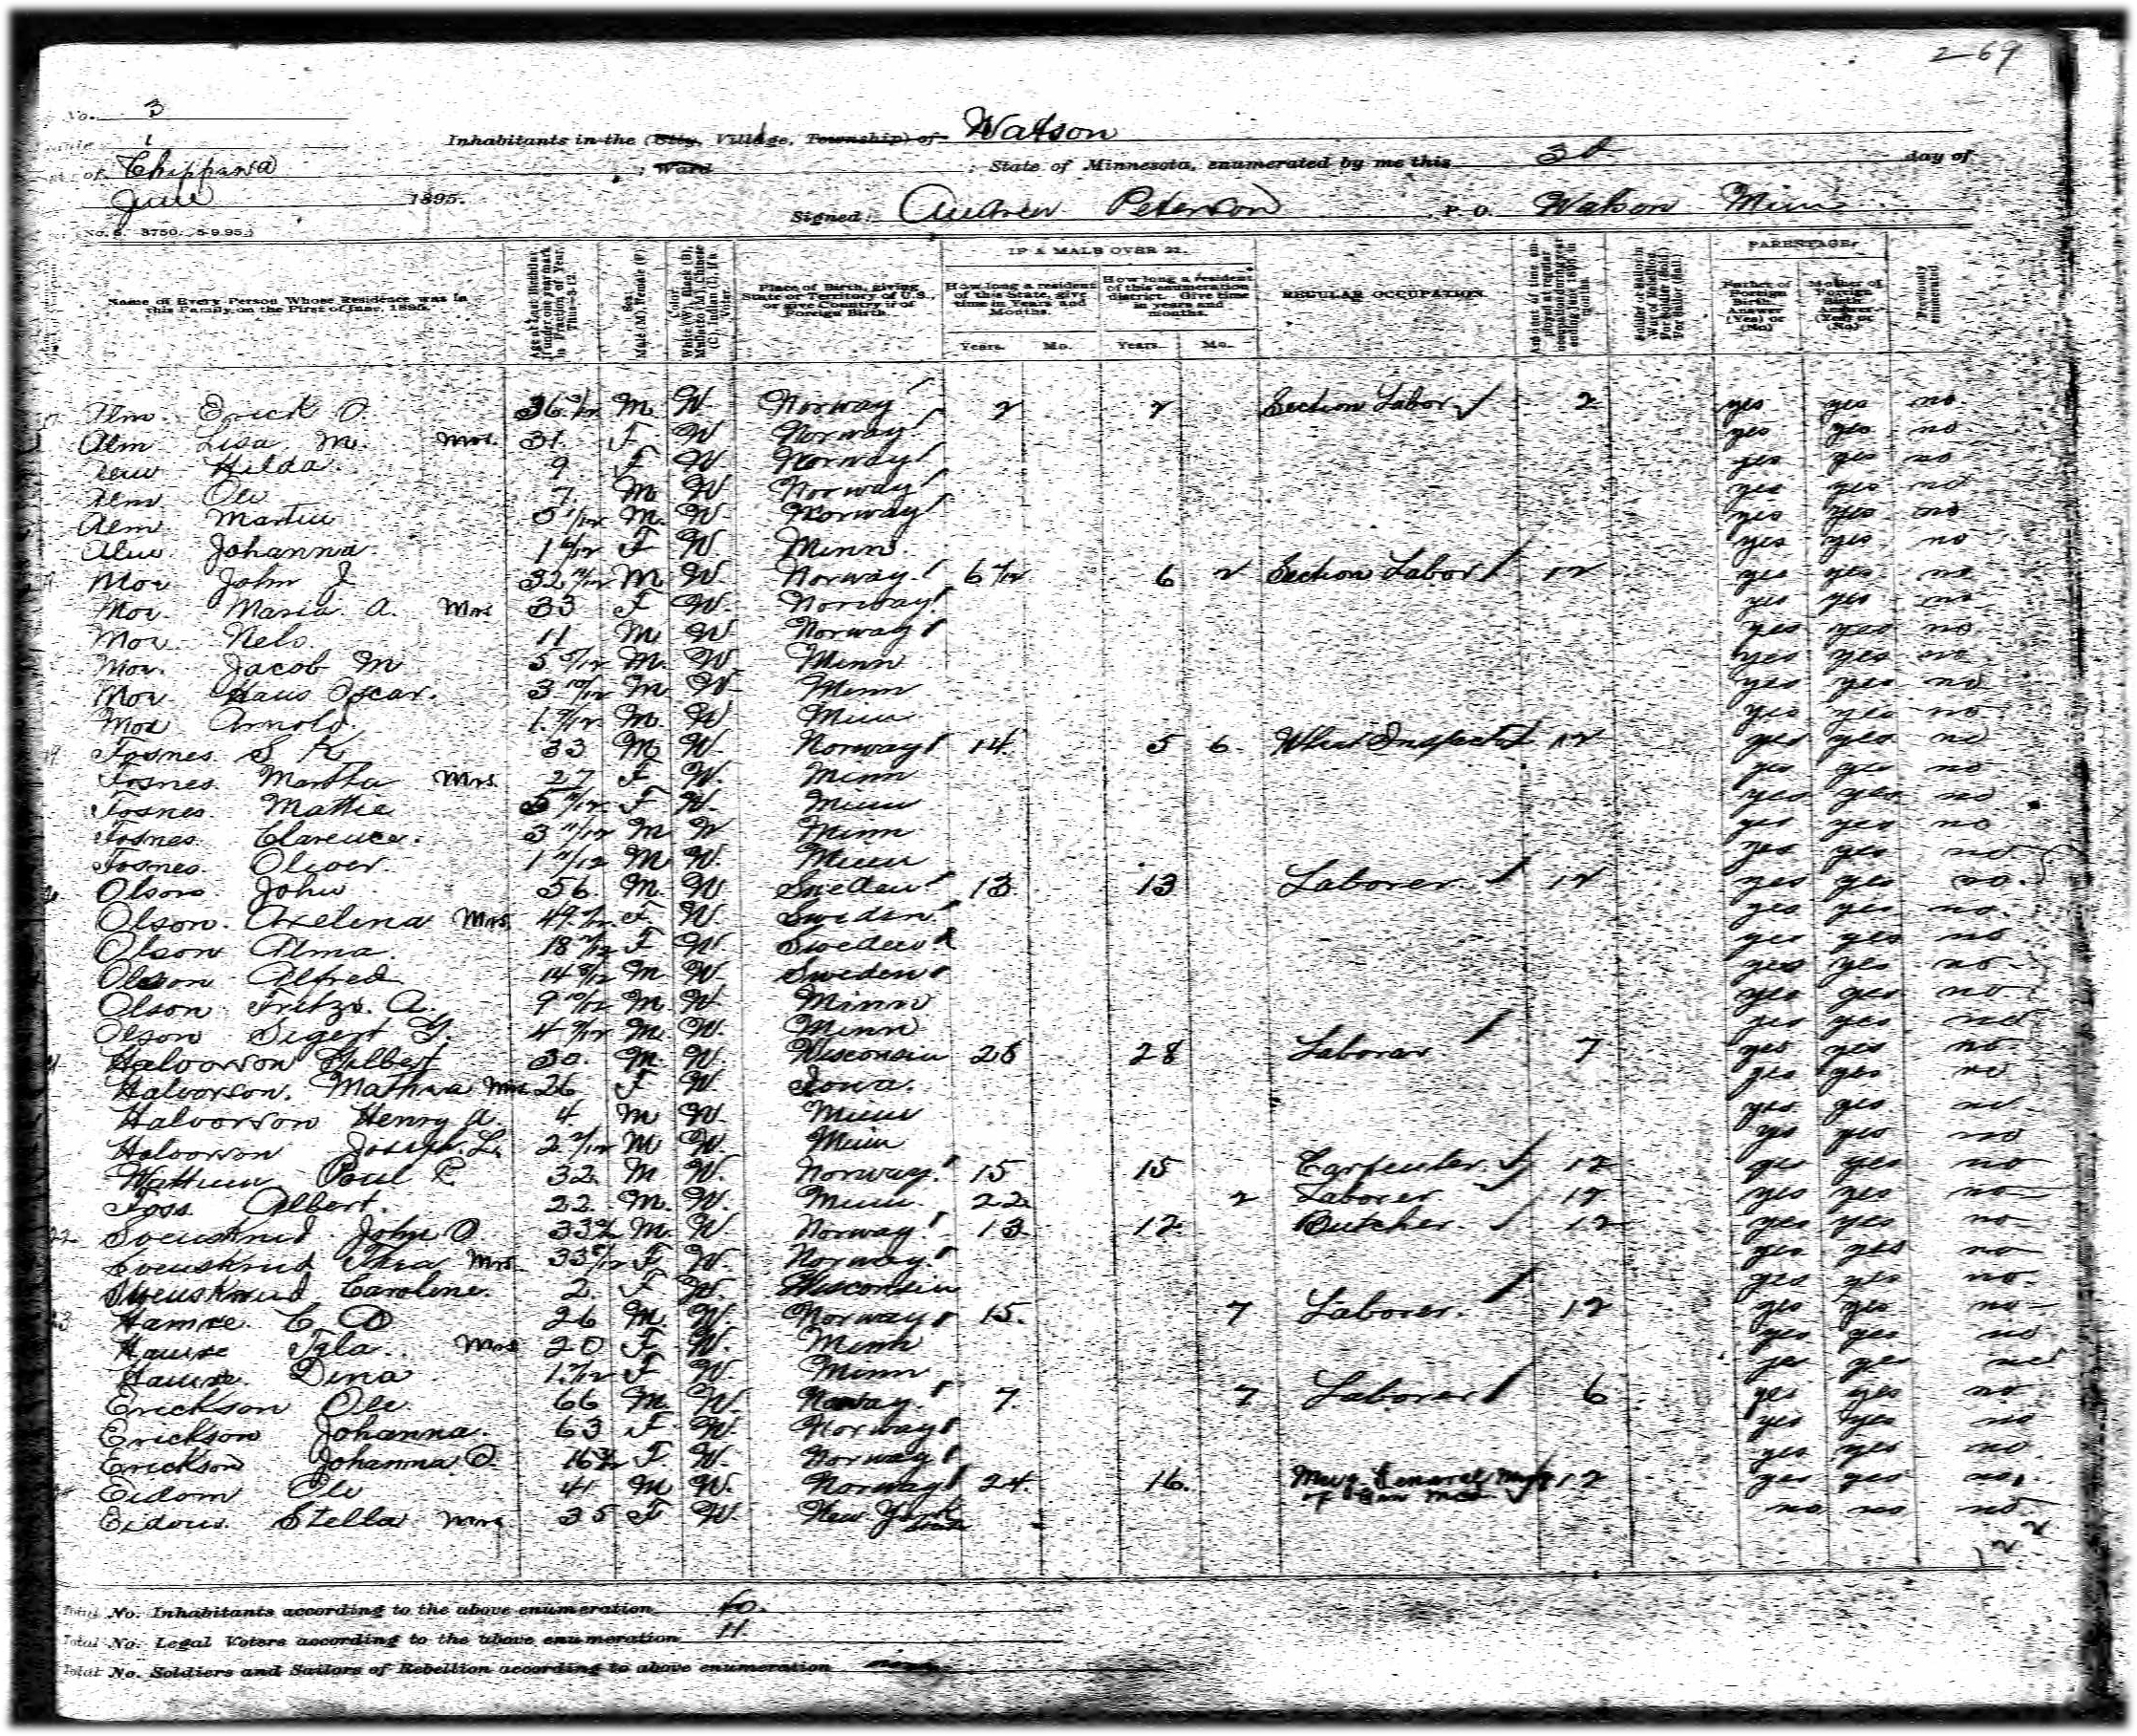 2-69
No. 3
1
of Chippewa
Inhabitants in the (City, Village, Township) of Watson
; Ward ; State of Minnesota, enumerated by me this 3d day of
June 1895.
Signed: Andrew Peterson, P. O. Watson Minn
No. 6. 3750. 5-9-95.
Name of Every Person Whose Residence was in this Family, on the First of June, 1895.
Age at Last Birthday. If under one year mark in Fraction of Year, Thus—3-12
Sex—Male (M), Female (F).
Place of Birth, giving State or Territory of U.S., or give Country if of Foreign Birth.
IF A MALE OVER 21.
How long a resident of this State, give time in Years and Months.
How long a resident of this enumeration district. Give time in years and months.
Years. Mo. Years. Mo.
REGULAR OCCUPATION.
PARENTAGE.
Father of Foreign Birth. Answer (Yes) or (No)
Mother of Foreign Birth. Answer (Yes) or (No)
Previously enumerated.
Alm Erick O. 36 M W Norway 2 2 Section Labor 2 yes yes no
Alm Lisa M. Mrs. 31 F W Norway yes yes no
Alm Hilda 9 F W Norway yes yes no
Alm Ole 7 M W Norway yes yes no
Alm Martin 5 M W Norway yes yes no
Alm Johanna 1 F W Minn yes yes no
Moe John J 32 M W Norway 6 6 2 Section Labor 12 yes yes no
Moe Maria A. Mrs 33 F W Norway yes yes no
Moe Nels 11 M W Norway yes yes no
Moe Jacob M 5 M W Minn yes yes no
Moe Hans Oscar 3 10/12 M W Minn yes yes no
Moe Arnold 1 M W Minn yes yes no
Fosnes S K 33 M W Norway 14 5 6 12 yes yes no
Fosnes Martha Mrs. 27 F W Minn yes yes no
Fosnes Mattie 5 F W Minn yes yes no
Fosnes Clarence 3 11/12 M W Minn yes yes no
Fosnes Oliver 1 M W Minn yes yes no
Olson John 56 M W Sweden 13 13 Laborer 12 yes yes no
Olson Axelina Mrs. 49 F W Sweden yes yes no
Olson Alma 18 F W Sweden yes yes no
Olson Alfred 14 M W Sweden yes yes no
Olson Fritz A. 9 10/12 M W Minn yes yes no
Olson Sigert G. 4 M W Minn yes yes no
Halvorson Gilbert 30 M W Wisconsin 28 28 Laborer 7 yes yes no
Halvorson Mathea Mrs 26 F W Iowa yes yes no
Halvorson Henry A. 4 M W Minn yes yes no
Halvorson Joseph L. 2 M W Minn yes yes no
Paul 32 M W Norway 15 15 Carpenter 12 yes yes no
Foss Albert 22 M W Minn 22 2 Laborer 12 yes yes no
22 John O 33 M W Norway 13 12 Butcher 12 yes yes no
Thea Mrs. 33 F W Norway yes yes no
Caroline 2 F W Wisconsin yes yes no
23 Hamre C O 26 M W Norway 15 7 Laborer 12 yes yes no
Hamre Mrs 20 F W Minn yes yes no
Hamre Dina 1 F W Minn yes yes no
Erickson Ole 66 M W Norway 7 7 Laborer 6 yes yes no
Erickson Johanna 63 F W Norway yes yes no
Erickson Johanna O. 16 F W Norway yes yes no
Eidom Ole 41 M W Norway 24 16 12 yes yes no
Eidom Stella Mrs 35 F W New York State no no no
Total No. Inhabitants according to the above enumeration 40
Total No. Legal Voters according to the above enumeration 11
Total No. Soldiers and Sailors of Rebellion according to above enumeration